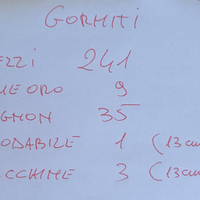 GORMITI
EZZI 241
E ORO 9
GNON 35
ODABILE 1 (13 cm
CCHINE 3 (13 cm